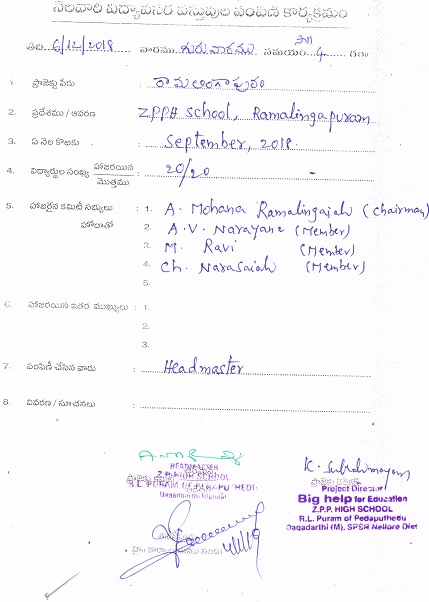 నెలవారీ విద్యావసర వస్తువుల పంపిణీ కార్యక్రమం
తేది 6/12/2018 వారము గురువారము సమయం సా॥ 4 గం॥
1. ప్రాజెక్టు పేరు : రామలింగాపురం
2. ప్రదేశము / ఆవరణ : ZPPH School, Ramalingapuram
3. ఏ నెల కొఱకు : September, 2018.
4. విద్యార్థుల సంఖ్య హాజరయిన / మొత్తము : 20/20
5. హాజరైన కమిటీ సభ్యులు హోదాతో : 1. A. Mohana Ramalingaiah (Chairman)
2. A.V. Narayana (Member)
3. M. Ravi (Member)
4. Ch. Narasaiah (Member)
5.
6. హాజరయిన ఇతర ముఖ్యులు : 1.
2.
3.
7. పంపిణీ చేసిన వారు : Headmaster
8. వివరణ / సూచనలు :
HEADMASTER
Z.P. HIGH SCHOOL
R.L. PURAM OF PEDAPUTHEDU
Dagadarthi Mandal
K. Subrahmanyam
Project Director
Big help for Education
Z.P.P. HIGH SCHOOL
R.L. Puram of Pedaputhedu
Dagadarthi (M), SPSR Nellore Dist